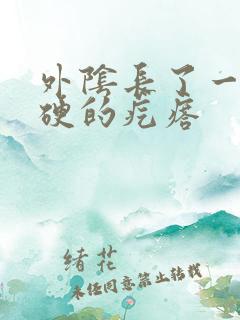 外陰長了一
硬的疙瘩
緒花
未经同意禁止转载